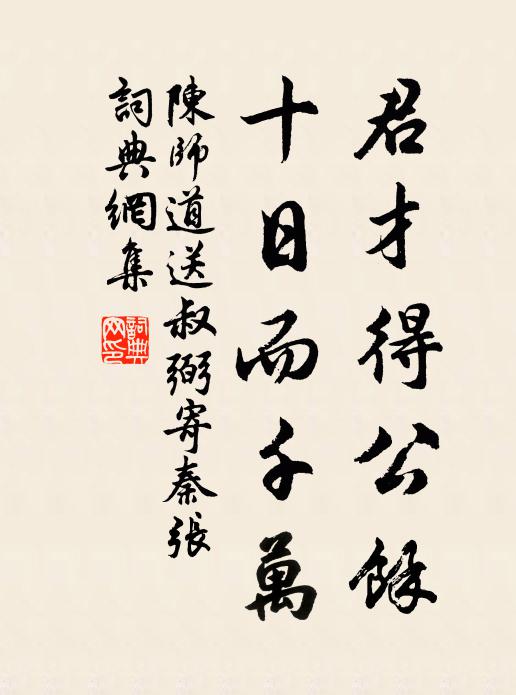 君才得公餘
十日而千萬
陳師道送叔弼寄秦張
詞典網集
詞典网印